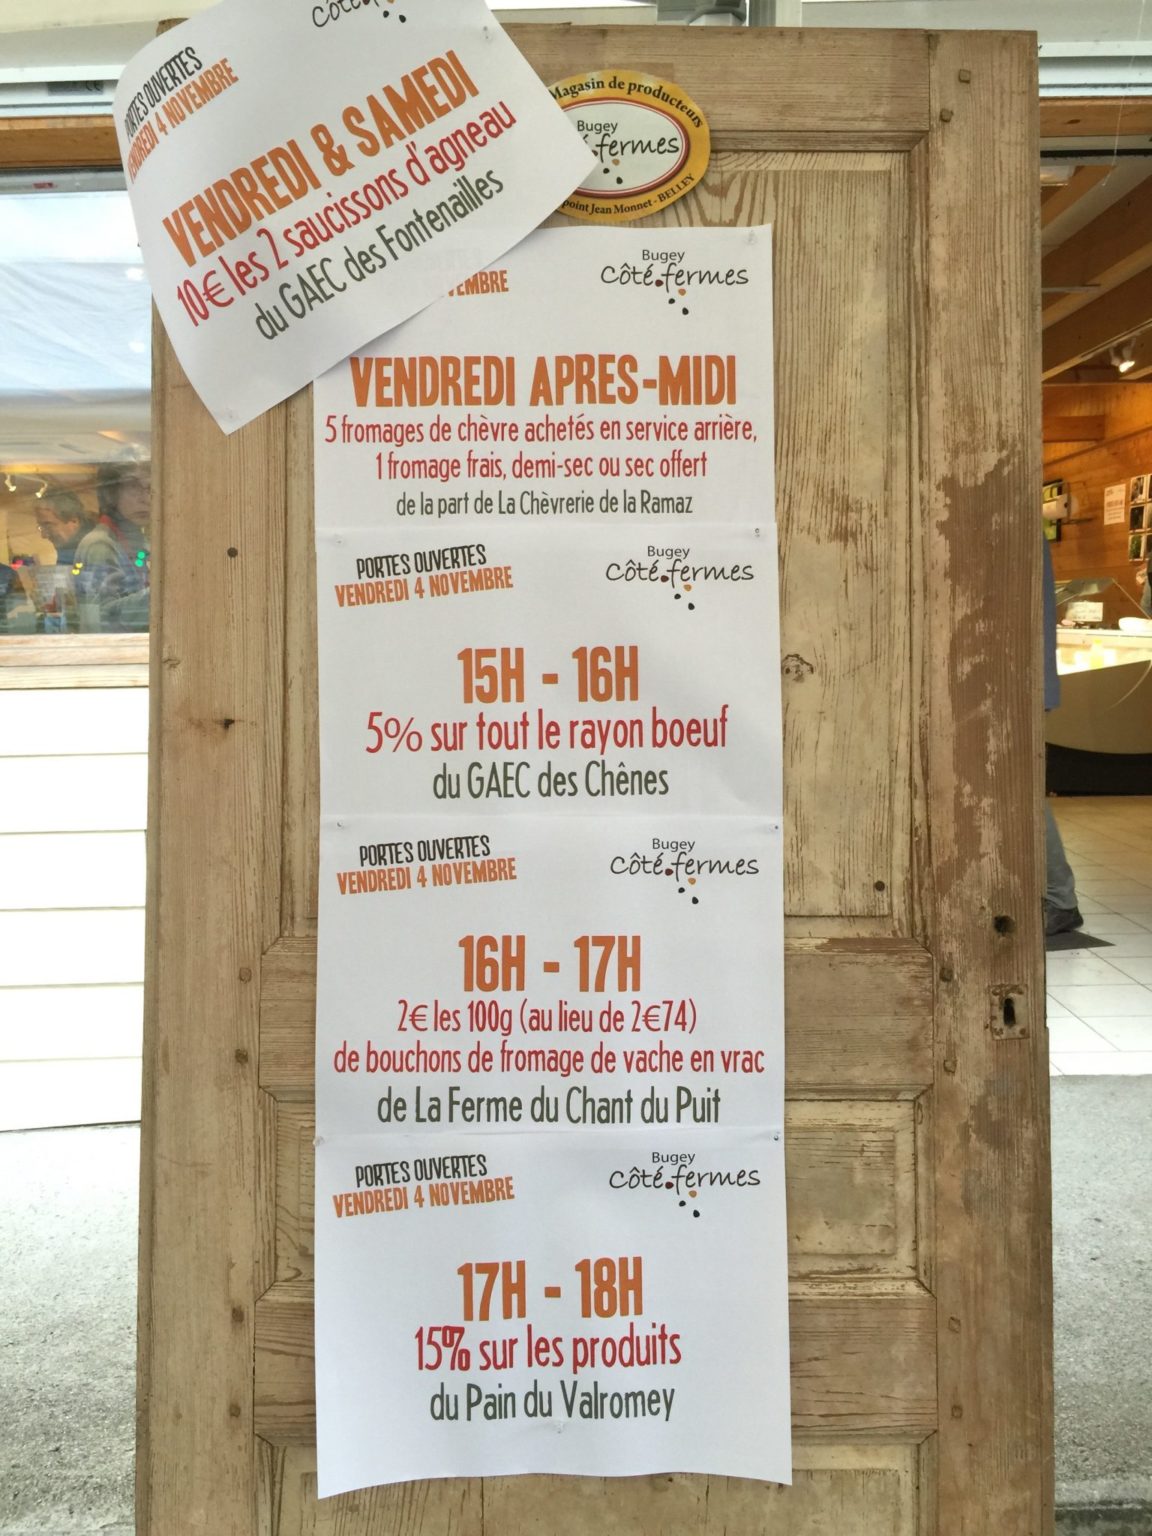 Côté
PORTES OUVERTES
VENDREDI 4 NOVEMBRE
VENDREDI & SAMEDI
10€ les 2 saucissons d'agneau
du GAEC des Fontenailles
Magasin de producteurs
Bugey
fermes
point Jean Monnet - BELLEY
EMBRE
Bugey
Côté fermes
VENDREDI APRES-MIDI
5 fromages de chèvre achetés en service arrière,
1 fromage frais, demi-sec ou sec offert
de la part de La Chèvrerie de la Ramaz
PORTES OUVERTES
VENDREDI 4 NOVEMBRE
Bugey
Côté fermes
15H - 16H
5% sur tout le rayon boeuf
du GAEC des Chênes
PORTES OUVERTES
VENDREDI 4 NOVEMBRE
Bugey
Côté fermes
16H - 17H
2€ les 100g (au lieu de 2€74)
de bouchons de fromage de vache en vrac
de La Ferme du Chant du Puit
PORTES OUVERTES
VENDREDI 4 NOVEMBRE
Bugey
Côté fermes
17H - 18H
15% sur les produits
du Pain du Valromey